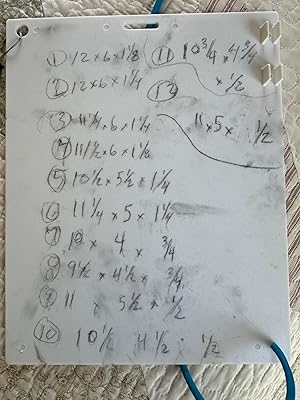 ① 12 x 6 x 1 1/8
② 12 x 6 x 1 1/4
③ 11 1/4 x 6 x 1 1/4
④ 11 1/2 x 6 x 1 1/8
⑤ 10 1/2 x 5 1/2 x 1 1/4
⑥ 11 1/4 x 5 x 1 1/4
⑦ 10 x 4 x 3/4
⑧ 9 1/2 x 4 1/2 x 3/4
⑨ 11 x 5 1/2 x 1/2
⑩ 10 1/2 4 1/2 1/2
⑪ 10 3/4 x 4 3/4
x 1/2
⑫
11 x 5 x 1/2